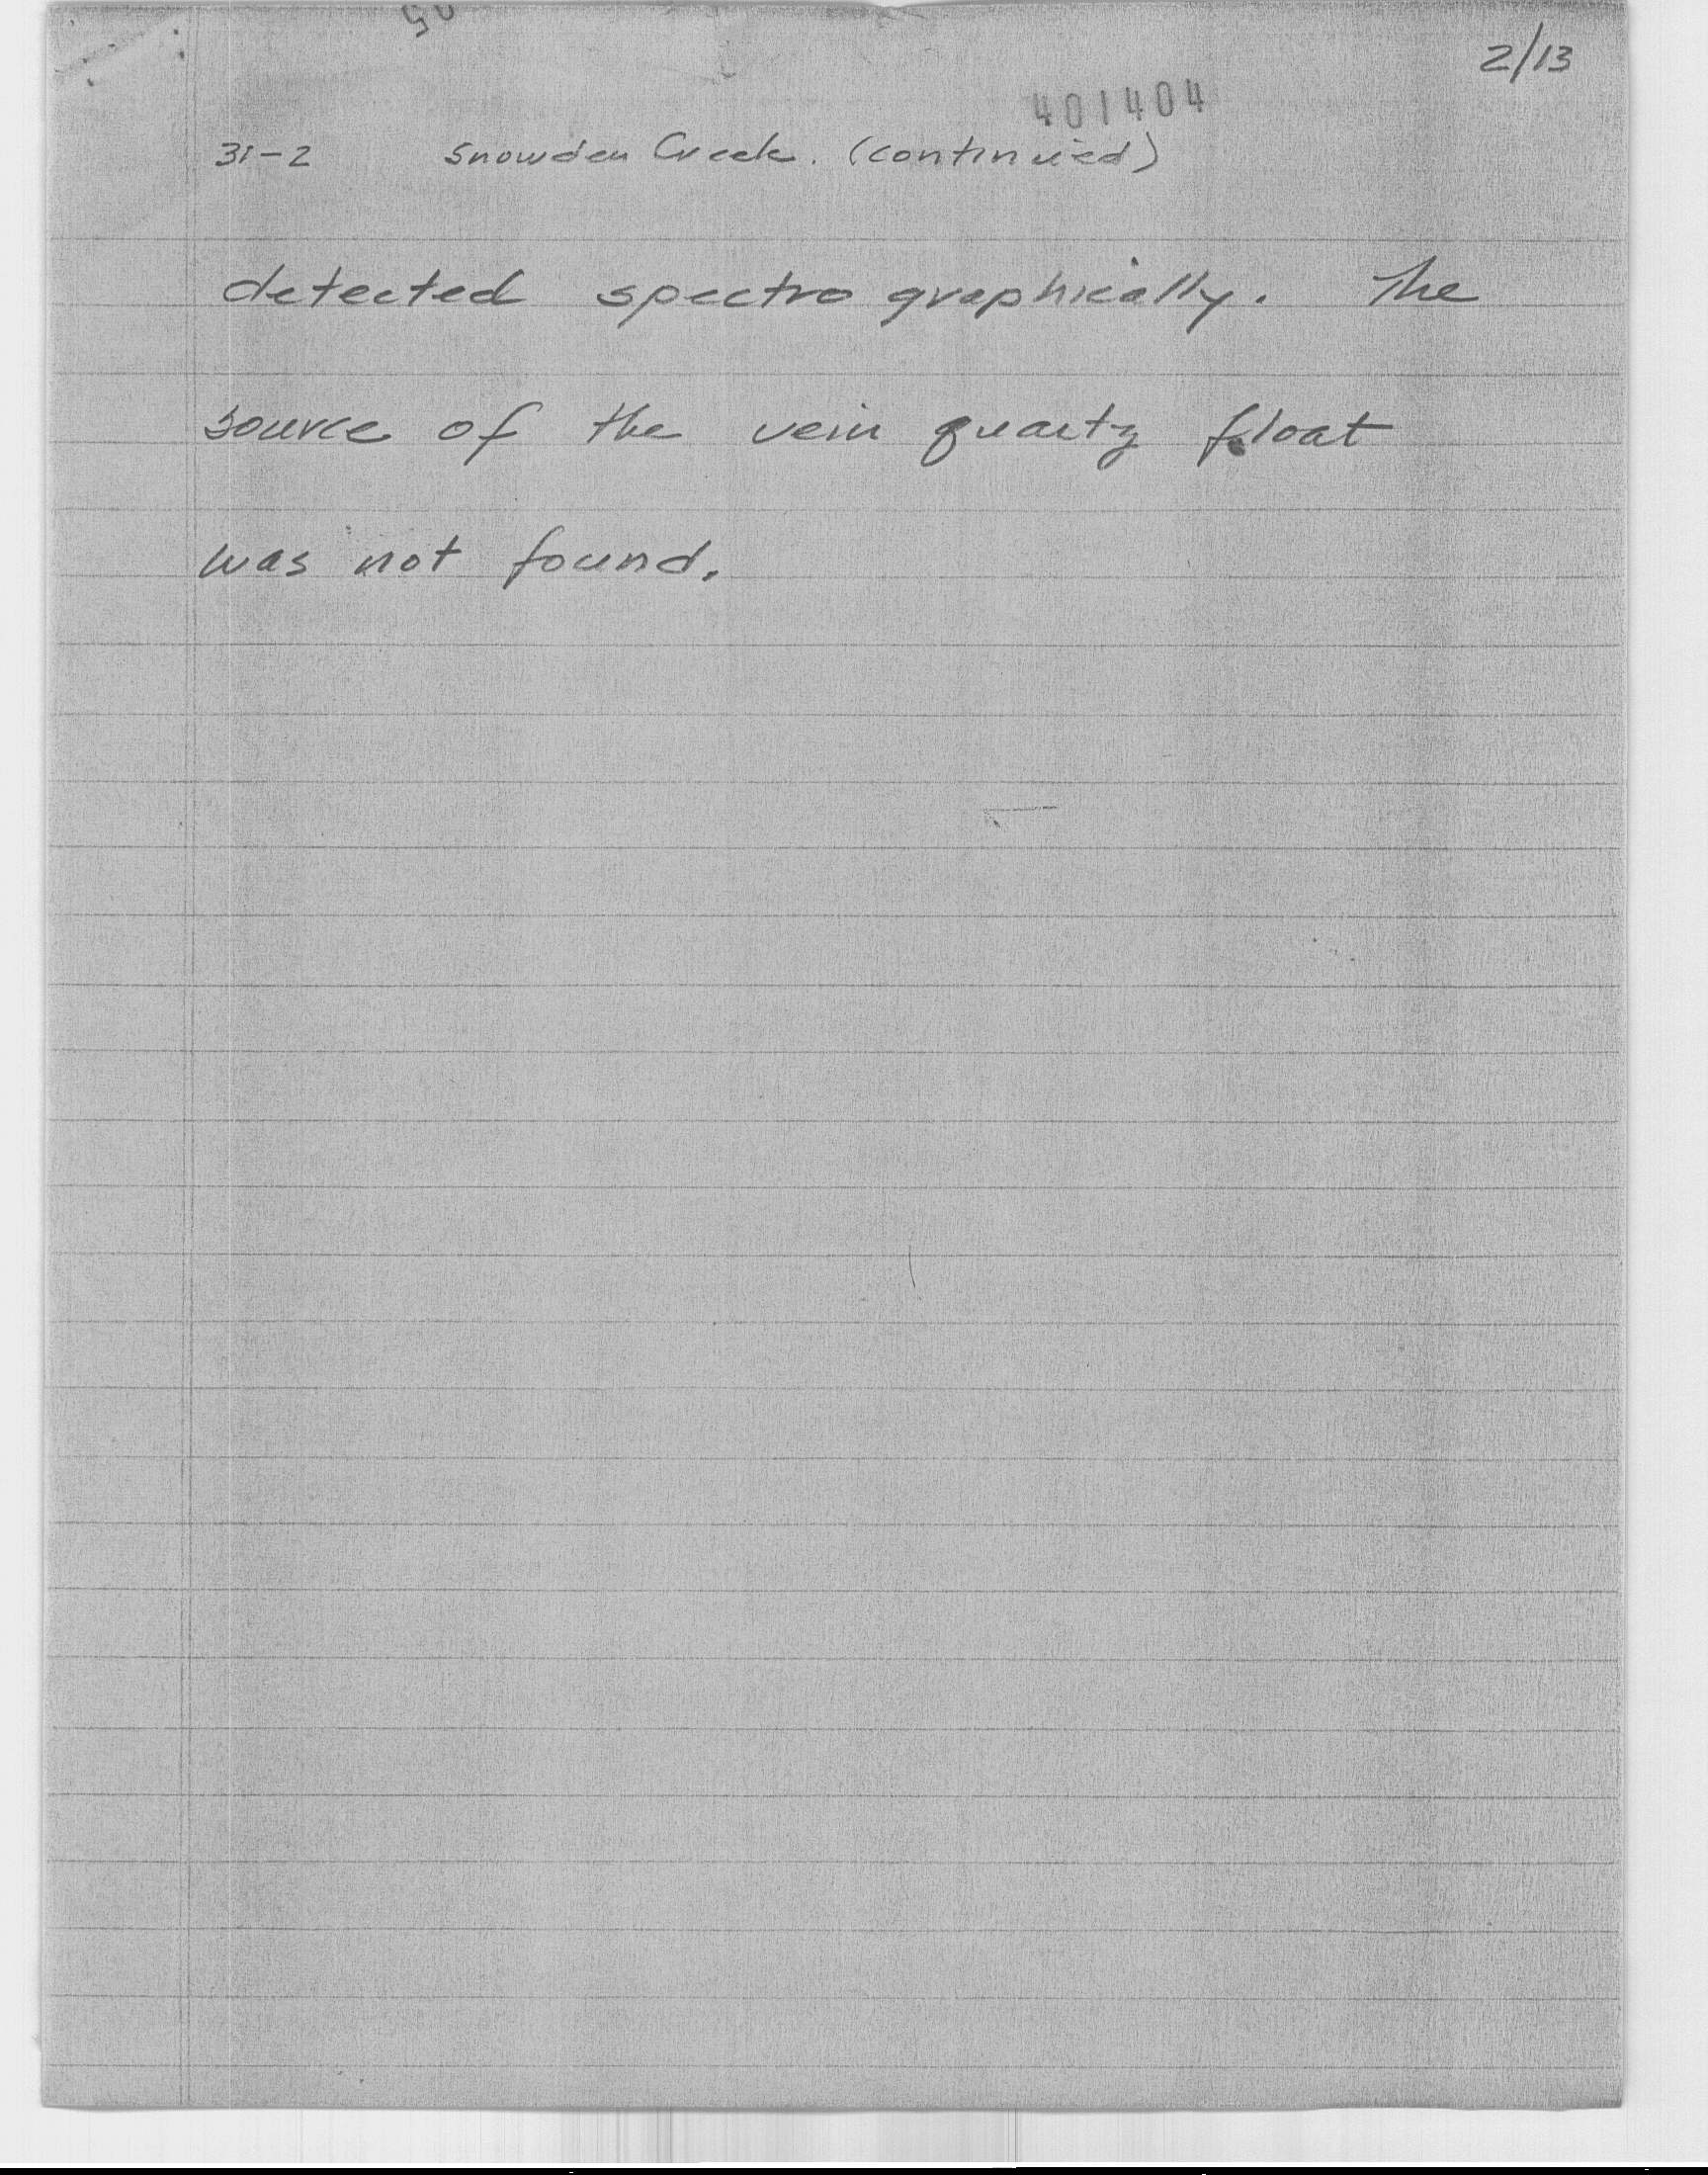 2/13
401404
31-2 Snowden Creek. (continued)
detected spectro graphically. The
source of the vein quartz float
was not found.